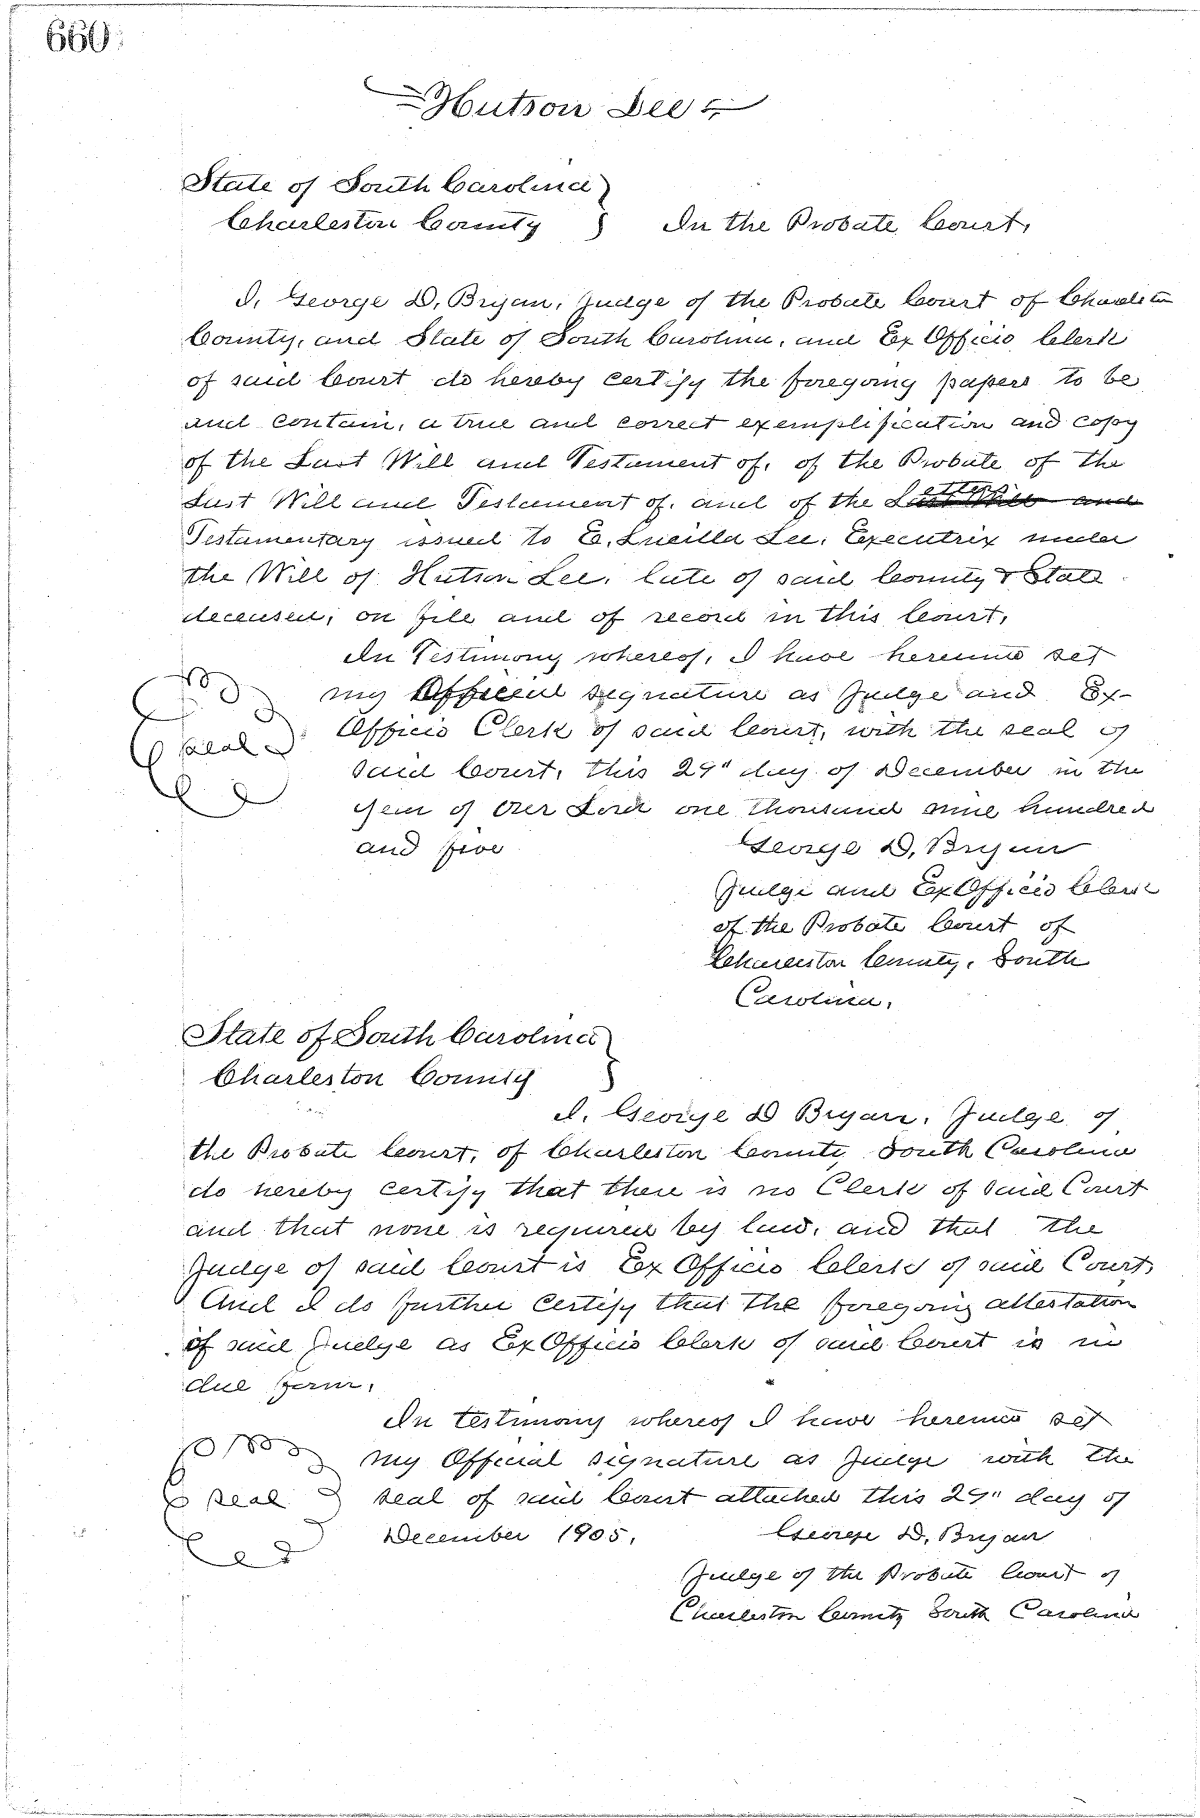 660
Hutson Lee
State of South Carolina }
Charleston County } In the Probate Court,
I, George D, Bryan, Judge of the Probate Court of Charleston
County, and State of South Carolina, and Ex Officio Clerk
of said Court do hereby certify the foregoing papers to be
and contain, a true and correct exemplification and copy
of the Last Will and Testament of, of the Probate of the
Last Will and Testament of, and of the Letters ~~Last Will and~~
Testamentary issued to E. Lucilla Lee, Executrix under
the Will of Hutson Lee, late of said County & State
deceased, on file and of record in this Court,
In Testimony whereof, I have hereunto set
my Official signature as Judge and Ex-
Officio Clerk of said Court, with the seal of
seal
said Court, this 29" day of December in the
year of Our Lord one thousand nine hundred
and five George D, Bryan
Judge and Ex Officio Clerk
of the Probate Court of
Charleston County, South
Carolina,
State of South Carolina }
Charleston County }
I, George D Bryan, Judge of
the Probate Court, of Charleston County South Carolina
do hereby certify that there is no Clerk of said Court
and that none is required by law, and that the
Judge of said Court is Ex Officio Clerk of said Court,
And I do further certify that the foregoing attestation
of said Judge as Ex Officio Clerk of said Court is in
due form,
In testimony whereof I have hereunto set
my Official signature as Judge with the
seal seal of said Court attached this 29" day of
December 1905, George D, Bryan
Judge of the Probate Court of
Charleston County South Carolina